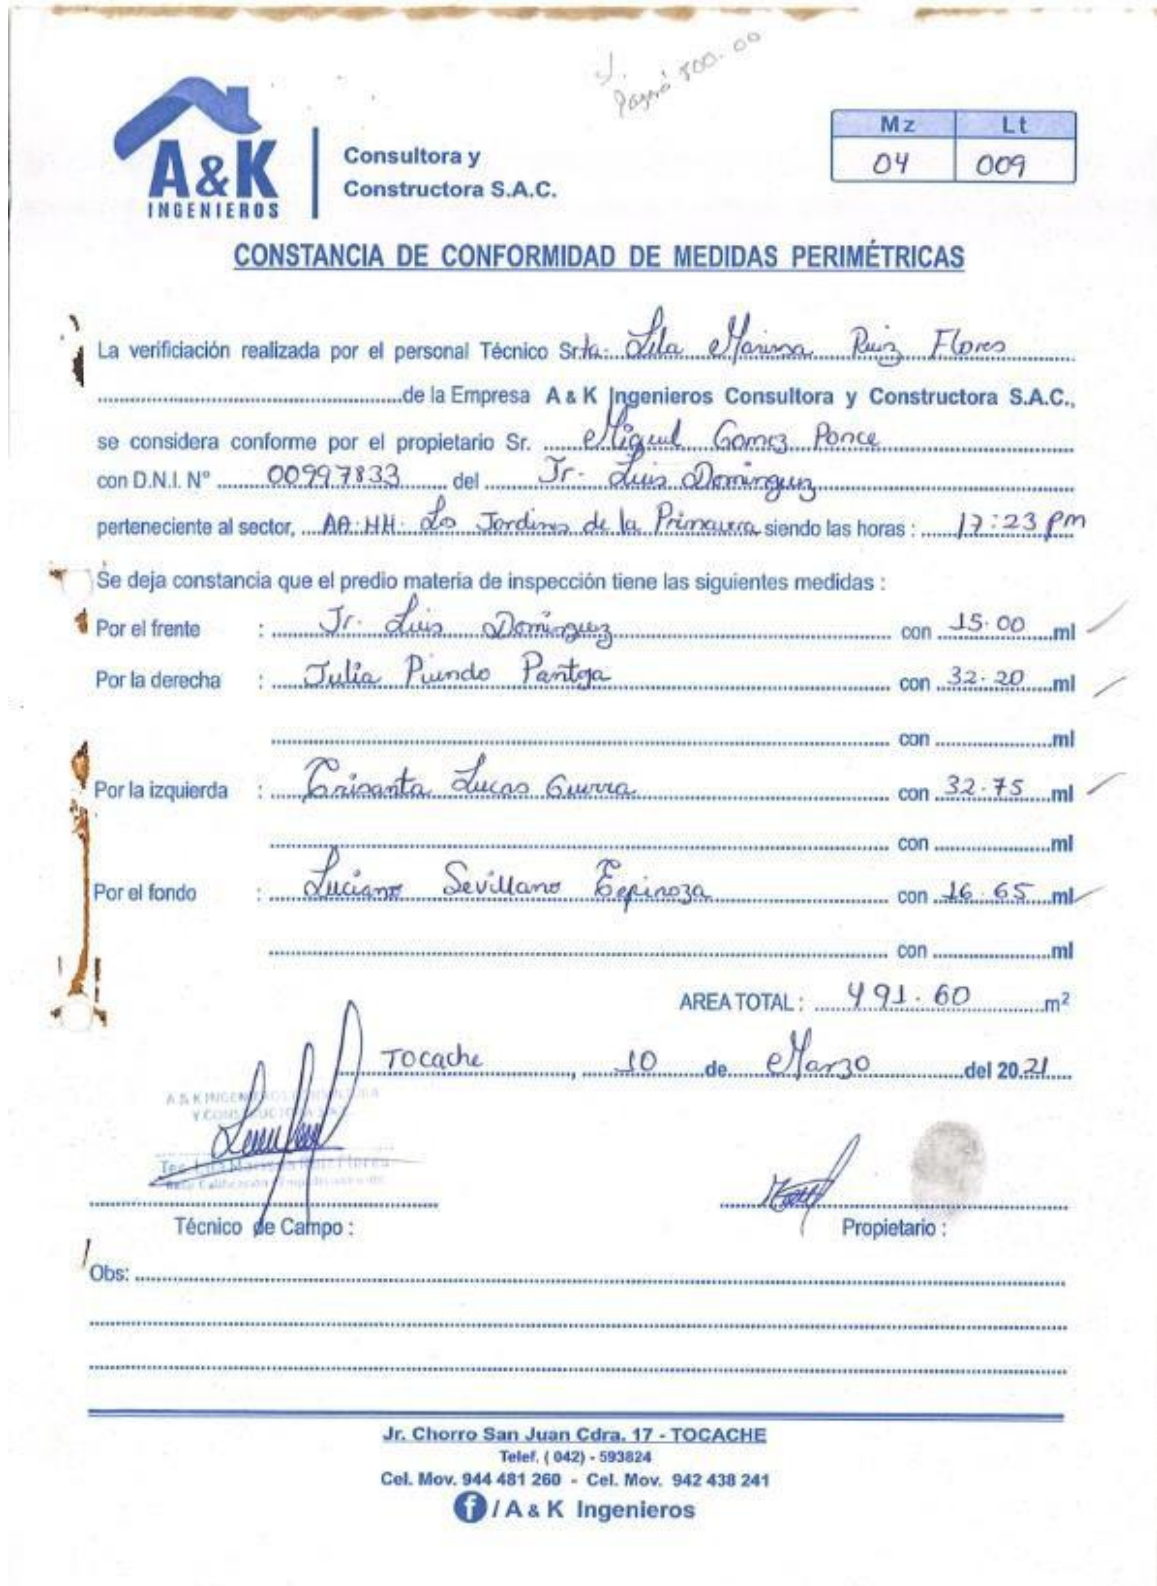 Pagará 500.00
A&K
INGENIEROS
Consultora y
Constructora S.A.C.
Mz Lt
04 009
CONSTANCIA DE CONFORMIDAD DE MEDIDAS PERIMÉTRICAS
La verificiación realizada por el personal Técnico Sr.ta. Lila Marina Ruiz Flores
de la Empresa A & K Ingenieros Consultora y Constructora S.A.C.,
se considera conforme por el propietario Sr. Miguel Gomez Ponce
con D.N.I. Nº 00997833 del Jr. Luis Dominguez
perteneciente al sector, AA.HH. Lo Jardines de la Primavera siendo las horas : 17:23 pm
Se deja constancia que el predio materia de inspección tiene las siguientes medidas :
Por el frente : Jr. Luis Dominguez con 15.00 ml
Por la derecha : Julia Piundo Pantoja con 32.20 ml
con ml
Por la izquierda : Crisanta Lucas Guerra con 32.75 ml
con ml
Por el fondo : Luciano Sevillano Espinoza con 16.65 ml
con ml
AREA TOTAL : 491.60 m²
Tocache, 10 de Marzo del 2021
A & K INGENIEROS
Técnico de Campo :
Propietario :
Obs:
Jr. Chorro San Juan Cdra. 17 - TOCACHE
Telef. ( 042) - 593824
Cel. Mov. 944 481 260 - Cel. Mov. 942 438 241
f / A & K Ingenieros